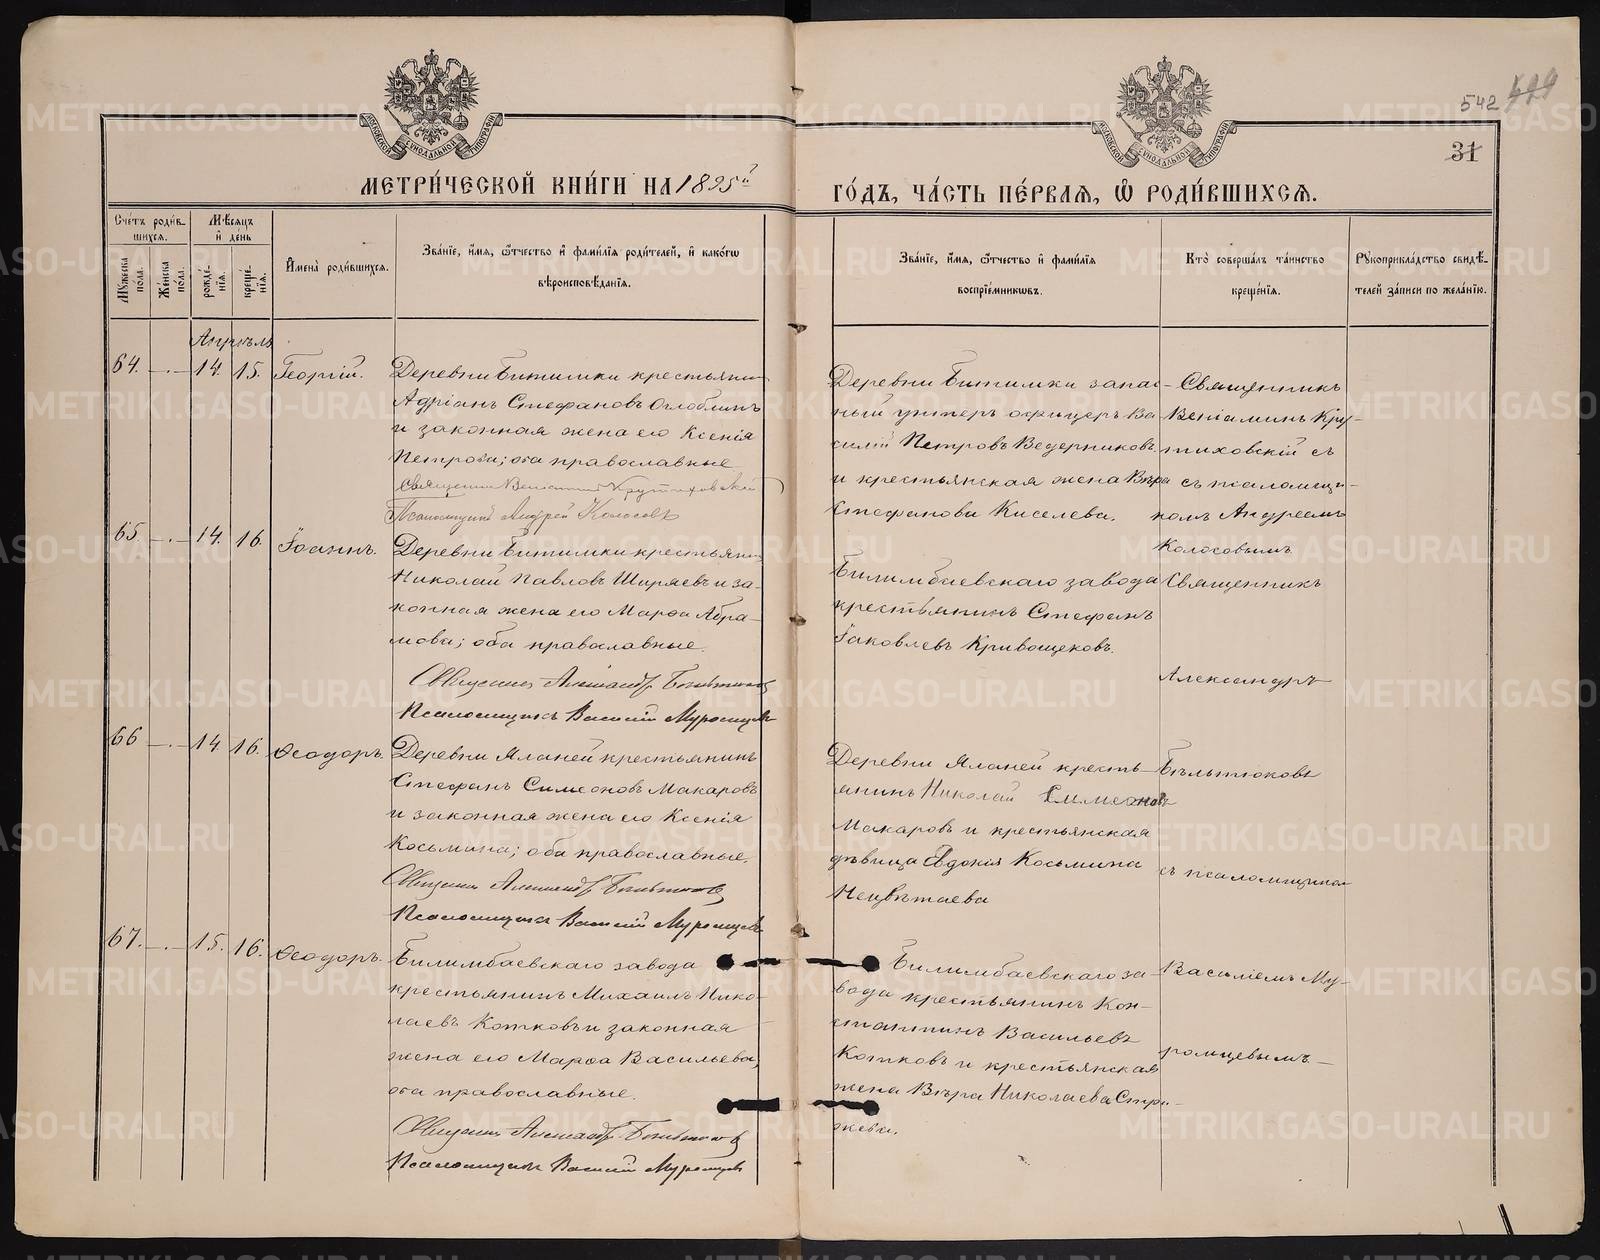 542 419
31
МЕТРИ́ЧЕСКОЙ КНИ́ГИ НА 1895й
ГО́ДЪ, ЧА́СТЬ ПЕ́РВАѦ, Ѽ РОДИ́ВШИХСѦ.
МОСКОВСКОЙ СѴНОДАЛЬНОЙ ТИПОГРАФІИ
МОСКОВСКОЙ СѴНОДАЛЬНОЙ ТИПОГРАФІИ
Сче́тъ роди́вшихсѧ.
Мꙋ́жеска пола.
Же́нска пола.
Мѣ́сѧцъ и҆ де́нь
рожде́нїѧ.
креще́нїѧ.
И҆мена̀ роди́вшихсѧ.
Зва́нїе, и҆́мѧ, ѻ҆́тчество и҆ фами́лїѧ роди́телей, и҆ како́гѡ
вѣроисповѣ́данїѧ.
Зва́нїе, и҆́мѧ, ѻ҆́тчество и҆ фами́лїѧ
воспрїе́мникѡвъ.
Кто̀ соверша́лъ та́инство
креще́нїѧ.
Рꙋкоприкла́дство свидѣ́-
телей за́писи по жела́нїю.
Апрѣль
64. — 14. 15. Георгій.
Деревни Битимки крестьянин
Адріанъ Стефановъ Оглоблинъ
и законная жена его Ксенія
Петрова; оба православные
Священник Веніамин Крутиховский
Псаломщик Андрей Колосовъ
Деревни Битимки запас-
ный унтеръ офицеръ Ва
силій Петровъ Ведерниковъ
и крестьянская жена Вѣра
Стефанова Киселева.
Священникъ
Веніаминъ Кру-
тиховскій съ
съ псаломщи-
комъ Андреемъ
Колосовымъ
65. — 14. 16. Іоаннъ.
Деревни Битимки крестьянин
Николай Павловъ Ширяевъ и за-
конная жена его Марѳа Абра-
мова; оба православные.
Священник Александр Бѣльтюков
Псаломщикъ Василій Муромцевъ
Билимбаевскаго завода
крестьянинъ Стефанъ
Іаковлевъ Кривощековъ.
Священникъ
Александръ
66 — 14 16. Ѳеодоръ.
Деревни Яланей крестьянинъ
Стефанъ Симеоновъ Макаровъ
и законная жена его Ксенія
Косьмина; оба православные.
Священник Александр Бѣльтюков
Псаломщикъ Василій Муромцевъ
Деревни Яланей кресть-
янинъ Николай Симеоновъ
Макаровъ и крестьянская
дѣвица Евдокія Косьмина
Нецвѣтаева
Бѣльтюковъ
съ псаломщиком
67. — 15. 16. Ѳеодоръ.
Билимбаевскаго завода
крестьянинъ Михаилъ Нико-
лаевъ Котковъ и законная
жена его Марѳа Васильева,
оба православные.
Священник Александр Бѣльтюков
Псаломщикъ Василій Муромцевъ
Билимбаевскаго за-
вода крестьянинъ Кон-
стантинъ Васильевъ
Котковъ и крестьянская
жена Вѣра Николаева Стри-
жева.
Василіемъ Му-
ромцевымъ
METRIKI.GASO-URAL.RU